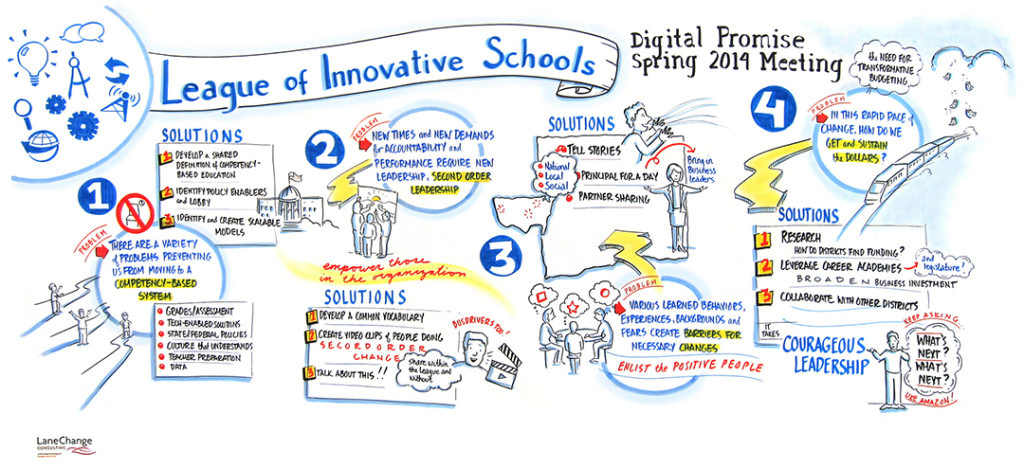 League of Innovative Schools
Digital Promise
Spring 2014 Meeting
1
PROBLEM
THERE ARE A VARIETY
of PROBLEMS PREVENTING
US FROM MOVING to A
COMPETENCY-BASED
SYSTEM
GRADES/ASSESSMENT
TECH-ENABLED SOLUTIONS
STATE/FEDERAL POLICIES
CULTURE that UNDERSTANDS
TEACHER PREPARATION
DATA
SOLUTIONS
1 DEVELOP a SHARED
DEFINITION of COMPETENCY-
BASED EDUCATION
2 IDENTIFY POLICY ENABLERS
and LOBBY
3 IDENTIFY and CREATE SCALABLE
MODELS
2
PROBLEM
NEW TIMES and NEW DEMANDS
for ACCOUNTABILITY and
PERFORMANCE REQUIRE NEW
LEADERSHIP. SECOND ORDER
LEADERSHIP
empower those
in the organization
SOLUTIONS
1 DEVELOP A COMMON VOCABULARY
2 CREATE VIDEO CLIPS of PEOPLE DOING
SECORD ORDER
CHANGE
3 TALK ABOUT THIS!!
BUSDRIVERS TOO!
Share within
the League and
without
3
PROBLEM
VARIOUS LEARNED BEHAVIORS,
EXPERIENCES, BACKGROUNDS and
FEARS CREATE BARRIERS FOR
NECESSARY CHANGES
ENLIST the POSITIVE PEOPLE
SOLUTIONS
TELL STORIES
National
Local
Social
PRINCIPAL FOR A DAY
PARTNER SHARING
Bring in
Business
leaders
4
the NEED FOR
TRANSFORMATIVE
BUDGETING
PROBLEM
IN THIS RAPID PACE of
CHANGE. HOW DO WE
GET and SUSTAIN
the DOLLARS?
SOLUTIONS
1 RESEARCH
HOW DO DISTRICTS FIND FUNDING?
2 LEVERAGE CAREER ACADEMIES
and legislature!
BROADEN BUSINESS INVESTMENT
3 COLLABORATE WITH OTHER DISTRICTS
IT
TAKES
COURAGEOUS
LEADERSHIP
KEEP ASKING...
WHAT'S
NEXT?
WHAT'S
NEXT?
LIKE AMAZON!
LaneChange
CONSULTING